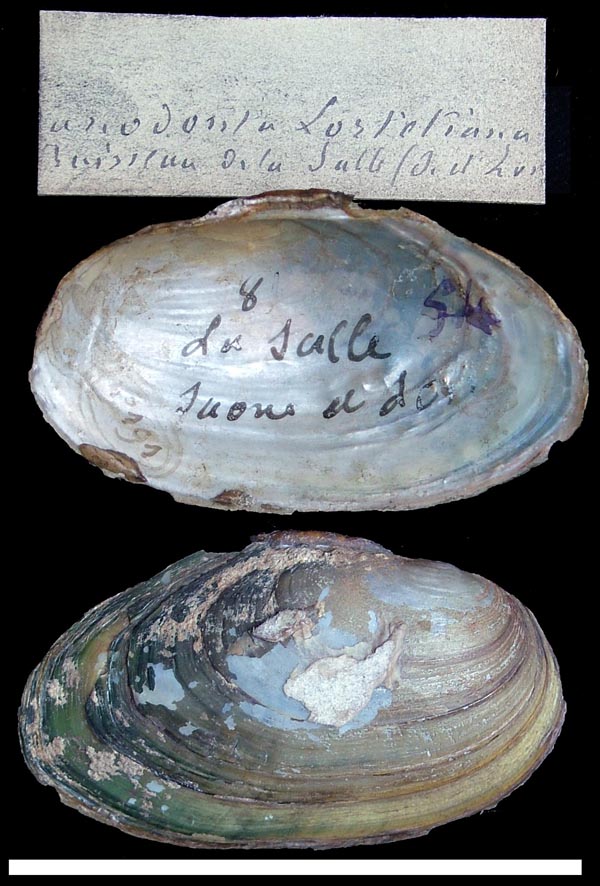 anodonta Lortetiana
Ruisseau de la Salle (S. et Loir
8
La Salle
Saone et Loi